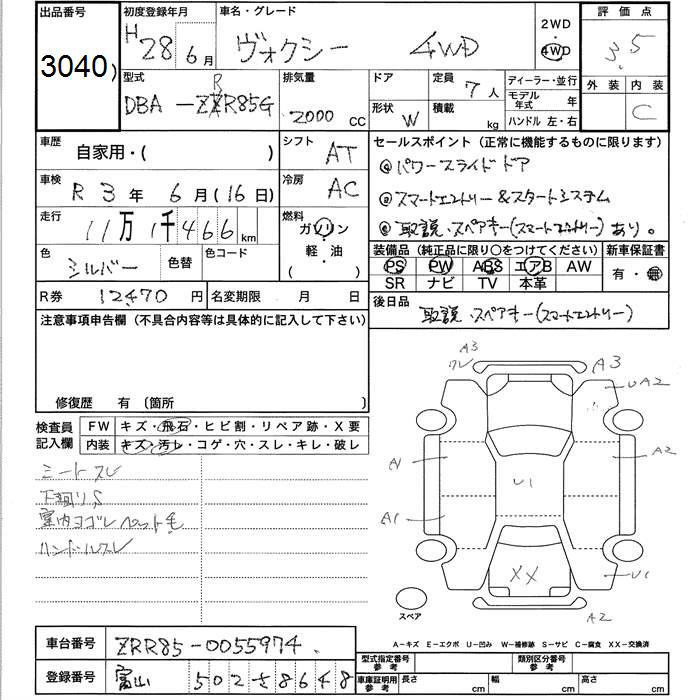 出品番号 初度登録年月 車名・グレード 2WD 4WD 評価点
3040) H28 6月 ヴォクシー 4WD 3.5
型式 排気量 ドア 定員 7人 ディーラー・並行 外装 内装
DBA-ZRR85G 2000 CC 形状 W 積載 kg モデル年式 年 ハンドル 左・右 C
車歴 自家用・( ) シフト AT セールスポイント (正常に機能するものに限ります)
車検 R 3年 6月(16日) 冷房 AC パワースライドドア
スマートエントリー&スタートシステム
走行 11万1千466km 燃料 ガソリン 軽・油 ( ) 取説・スペアキー(スマートエントリー)あり。
色 シルバー 色替 色コード 装備品 (純正品に限り○をつけてください) 新車保証書
PS PW ABS エアB AW 有・無
SR ナビ TV 本革
R券 12470円 名変期限 月 日 後日品
取説・スペアキー(スマートエントリー)
注意事項申告欄 (不具合内容等は具体的に記入して下さい)
修復歴 有 (箇所
検査員記入欄 FW キズ・飛石・ヒビ割・リペア跡・X要
内装 キズ・汚レ・コゲ・穴・スレ・キレ・破レ
シートスレ
下廻りS
室内ヨゴレ ペット毛
ハンドルスレ
A3
ワレ
A3
UA2
A1
A2
U1
A1
XX
U1
A2
スペア
A-キズ E-エクボ U-凹み W-補修跡 S-サビ C-腐食 XX-交換済
車台番号 ZRR85-0055974
登録番号 富山 502 8648
型式指定番号 参考 類別区分番号 参考
車庫証明用 参考 長さ cm 幅 cm 高さ cm